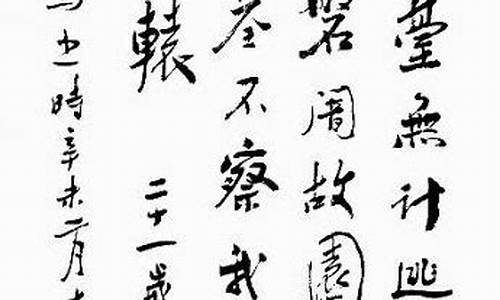 臺無計逃
磐闇故園
荃不察我
轅 二十一歲
寫之時辛未二月